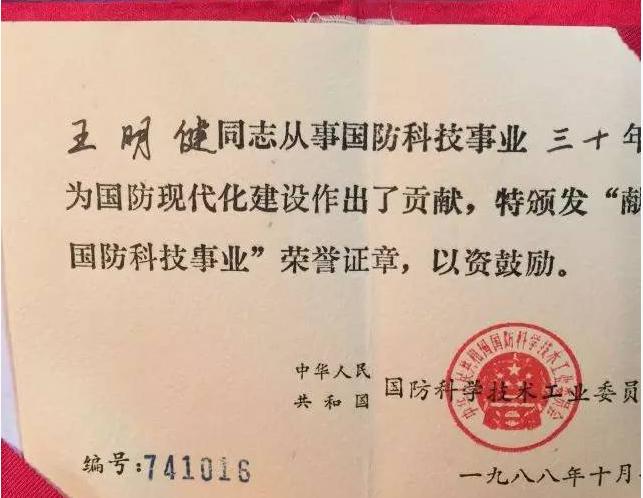 王明健同志从事国防科技事业三十年
为国防现代化建设作出了贡献，特颁发“献
国防科技事业”荣誉证章，以资鼓励。
中华人民共和国国防科学技术工业委员会
中华人民
共和国 国防科学技术工业委员
编号:741016
一九八八年十月